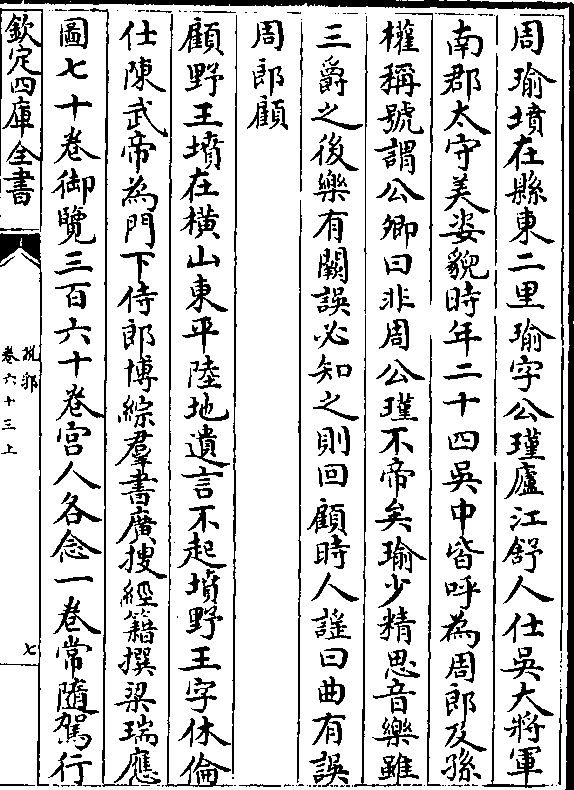 周瑜墳在縣東二里瑜字公瑾廬江舒人仕吳大將軍
南郡太守美姿貌時年二十四吳中皆呼為周郎及孫
權稱號謂公卿曰非周公瑾不帝矣瑜少精思音樂雖
三爵之後樂有闕誤必知之則回顧時人謡曰曲有誤
周郎顧
顧野王墳在橫山東平陸地遺言不起墳野王字休倫
仕陳武帝為門下侍郎博綜羣書廣搜經籍撰梁瑞應
圖七十卷御覽三百六十卷宫人各念一卷常隨駕行
欽定四庫全書
說郛
卷六十三上
七